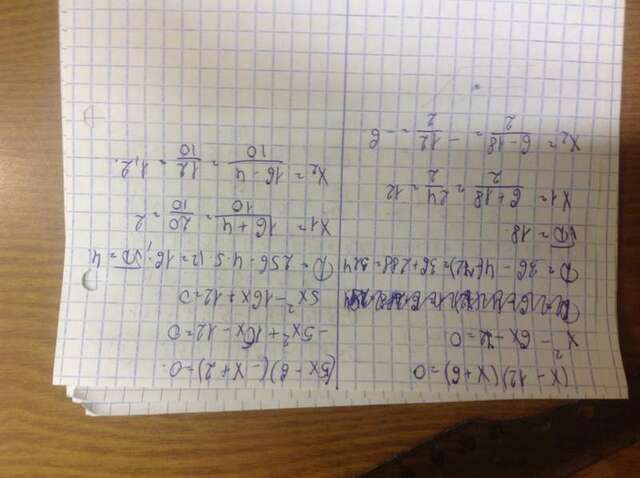 (x - 12)(x + 6) = 0
x² - 6x - 72 = 0
D = 36 - 4(-72) = 36 + 288 = 324
√D = 18.
x1 = (6 + 18)/2 = 24/2 = 12
x2 = (6 - 18)/2 = -12/2 = -6
(5x - 6)(-x + 2) = 0.
-5x² + 16x - 12 = 0
5x² - 16x + 12 = 0
D = 256 - 4·5·12 = 16; √D = 4.
x1 = (16 + 4)/10 = 20/10 = 2
x2 = (16 - 4)/10 = 12/10 = 1,2.